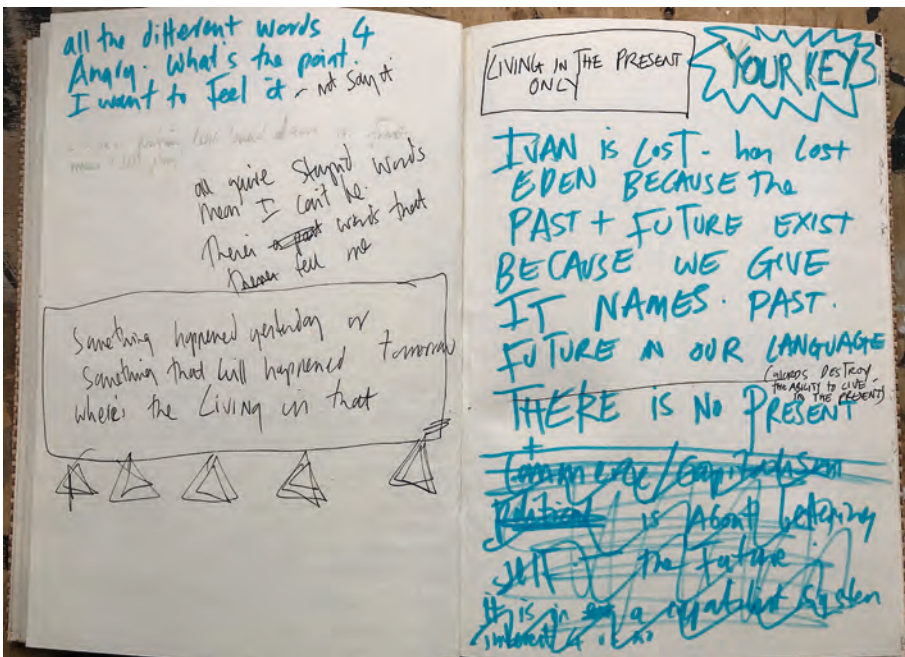 all the different words 4
Angry. What's the point.
I want to Feel it - not Say it
all youre Stupid words
mean I can't be.
Theres words that
feel me
Something happened yesterday or
Something that will happened tomorrow
where's the Living in that
LIVING IN THE PRESENT
ONLY
YOUR KEY
IVAN is LOST - has Lost
EDEN BECAUSE The
PAST + FUTURE EXIST
BECAUSE WE GIVE
IT NAMES. PAST.
FUTURE IN OUR LANGUAGE
(WORDS DESTROY
THE ABILITY TO LIVE
IN THE PRESENT)
THERE is No PRESENT
+
Commerce / Capitalism
is About bettering
self - the Future.
it is in a capitalist System